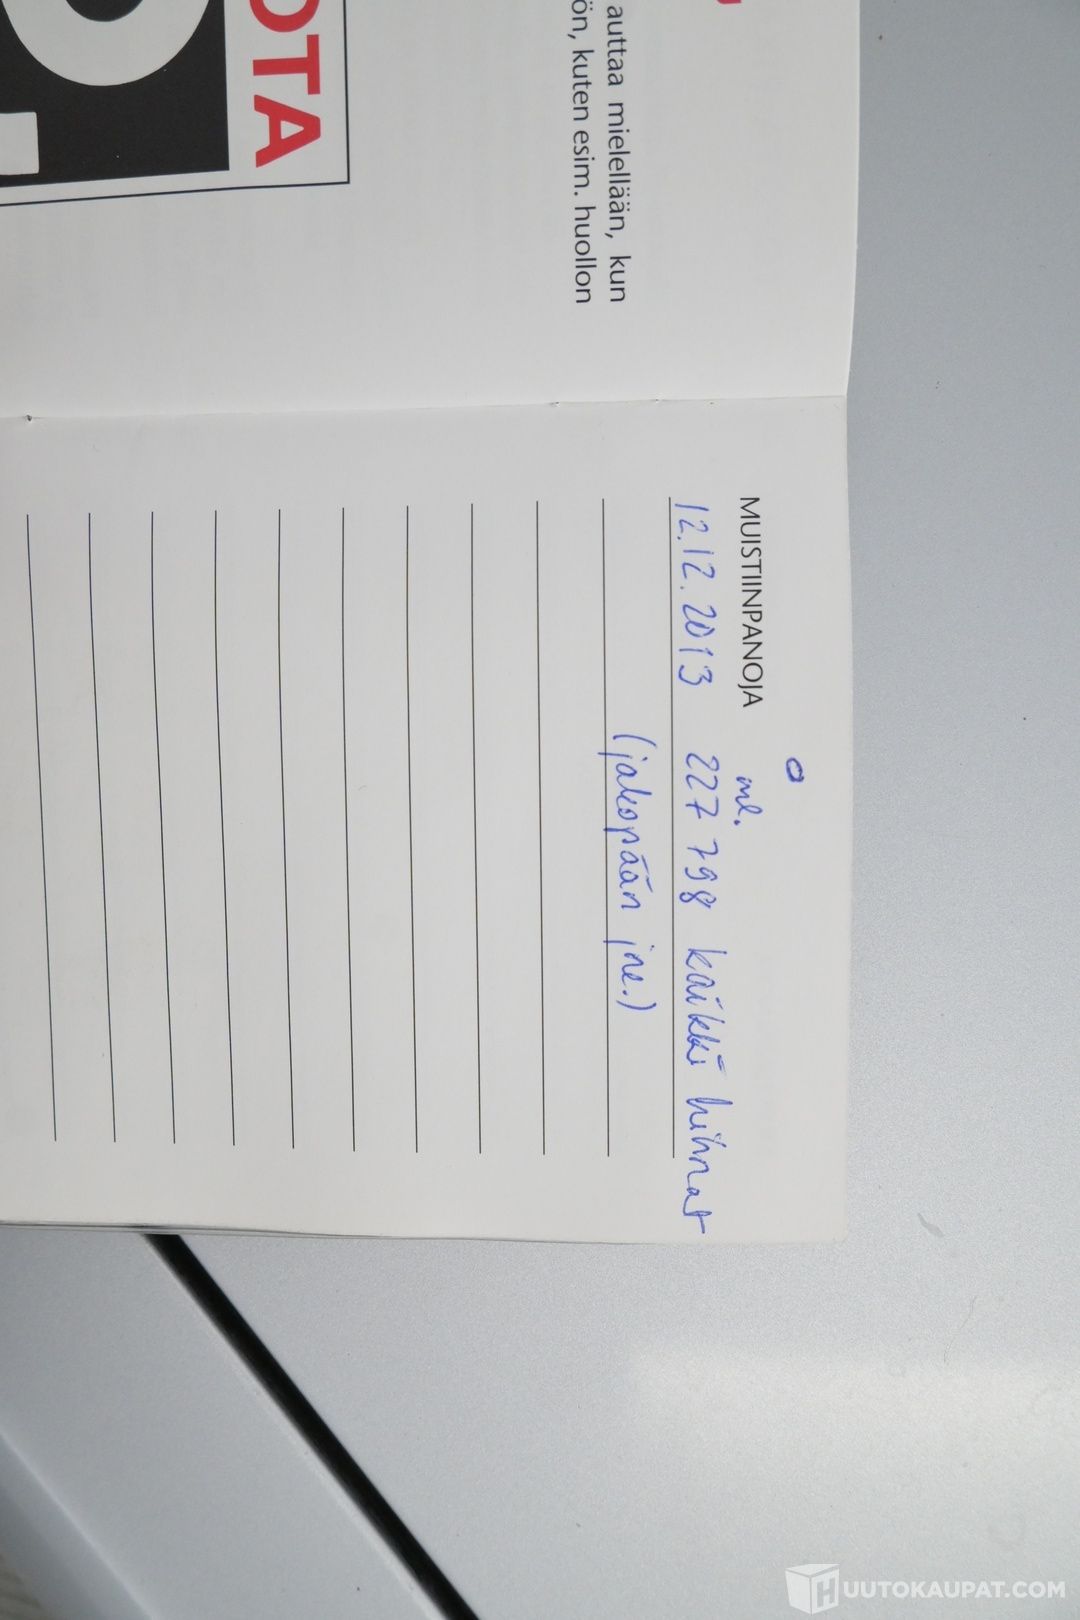 OTA
auttaa mielellään, kun
ön, kuten esim. huollon
MUISTIINPANOJA
ml.
12.12.2013 227 798 kaikki hihnat
(jakopään jne.)
HUUTOKAUPAT.COM